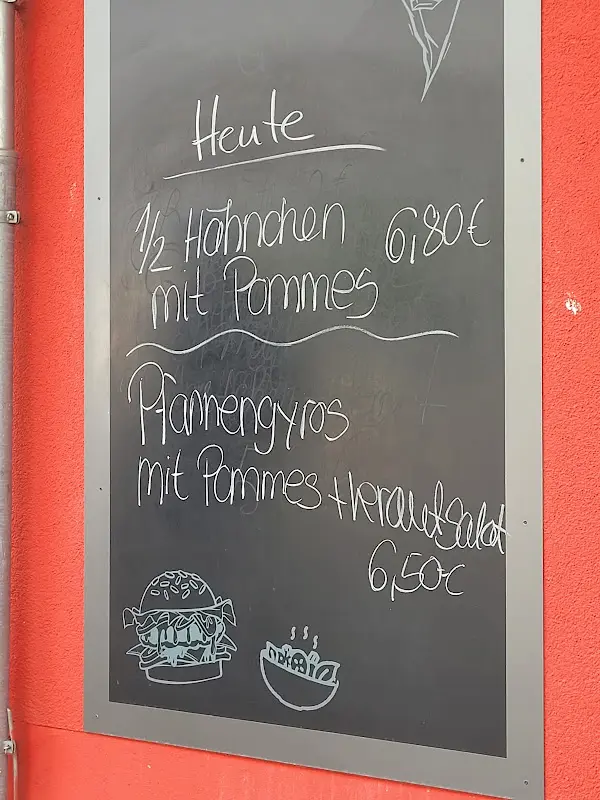 Heute
1/2 Hähnchen 6,80€
mit Pommes
Pfannengyros
mit Pommes + Krautsalat
6,50€